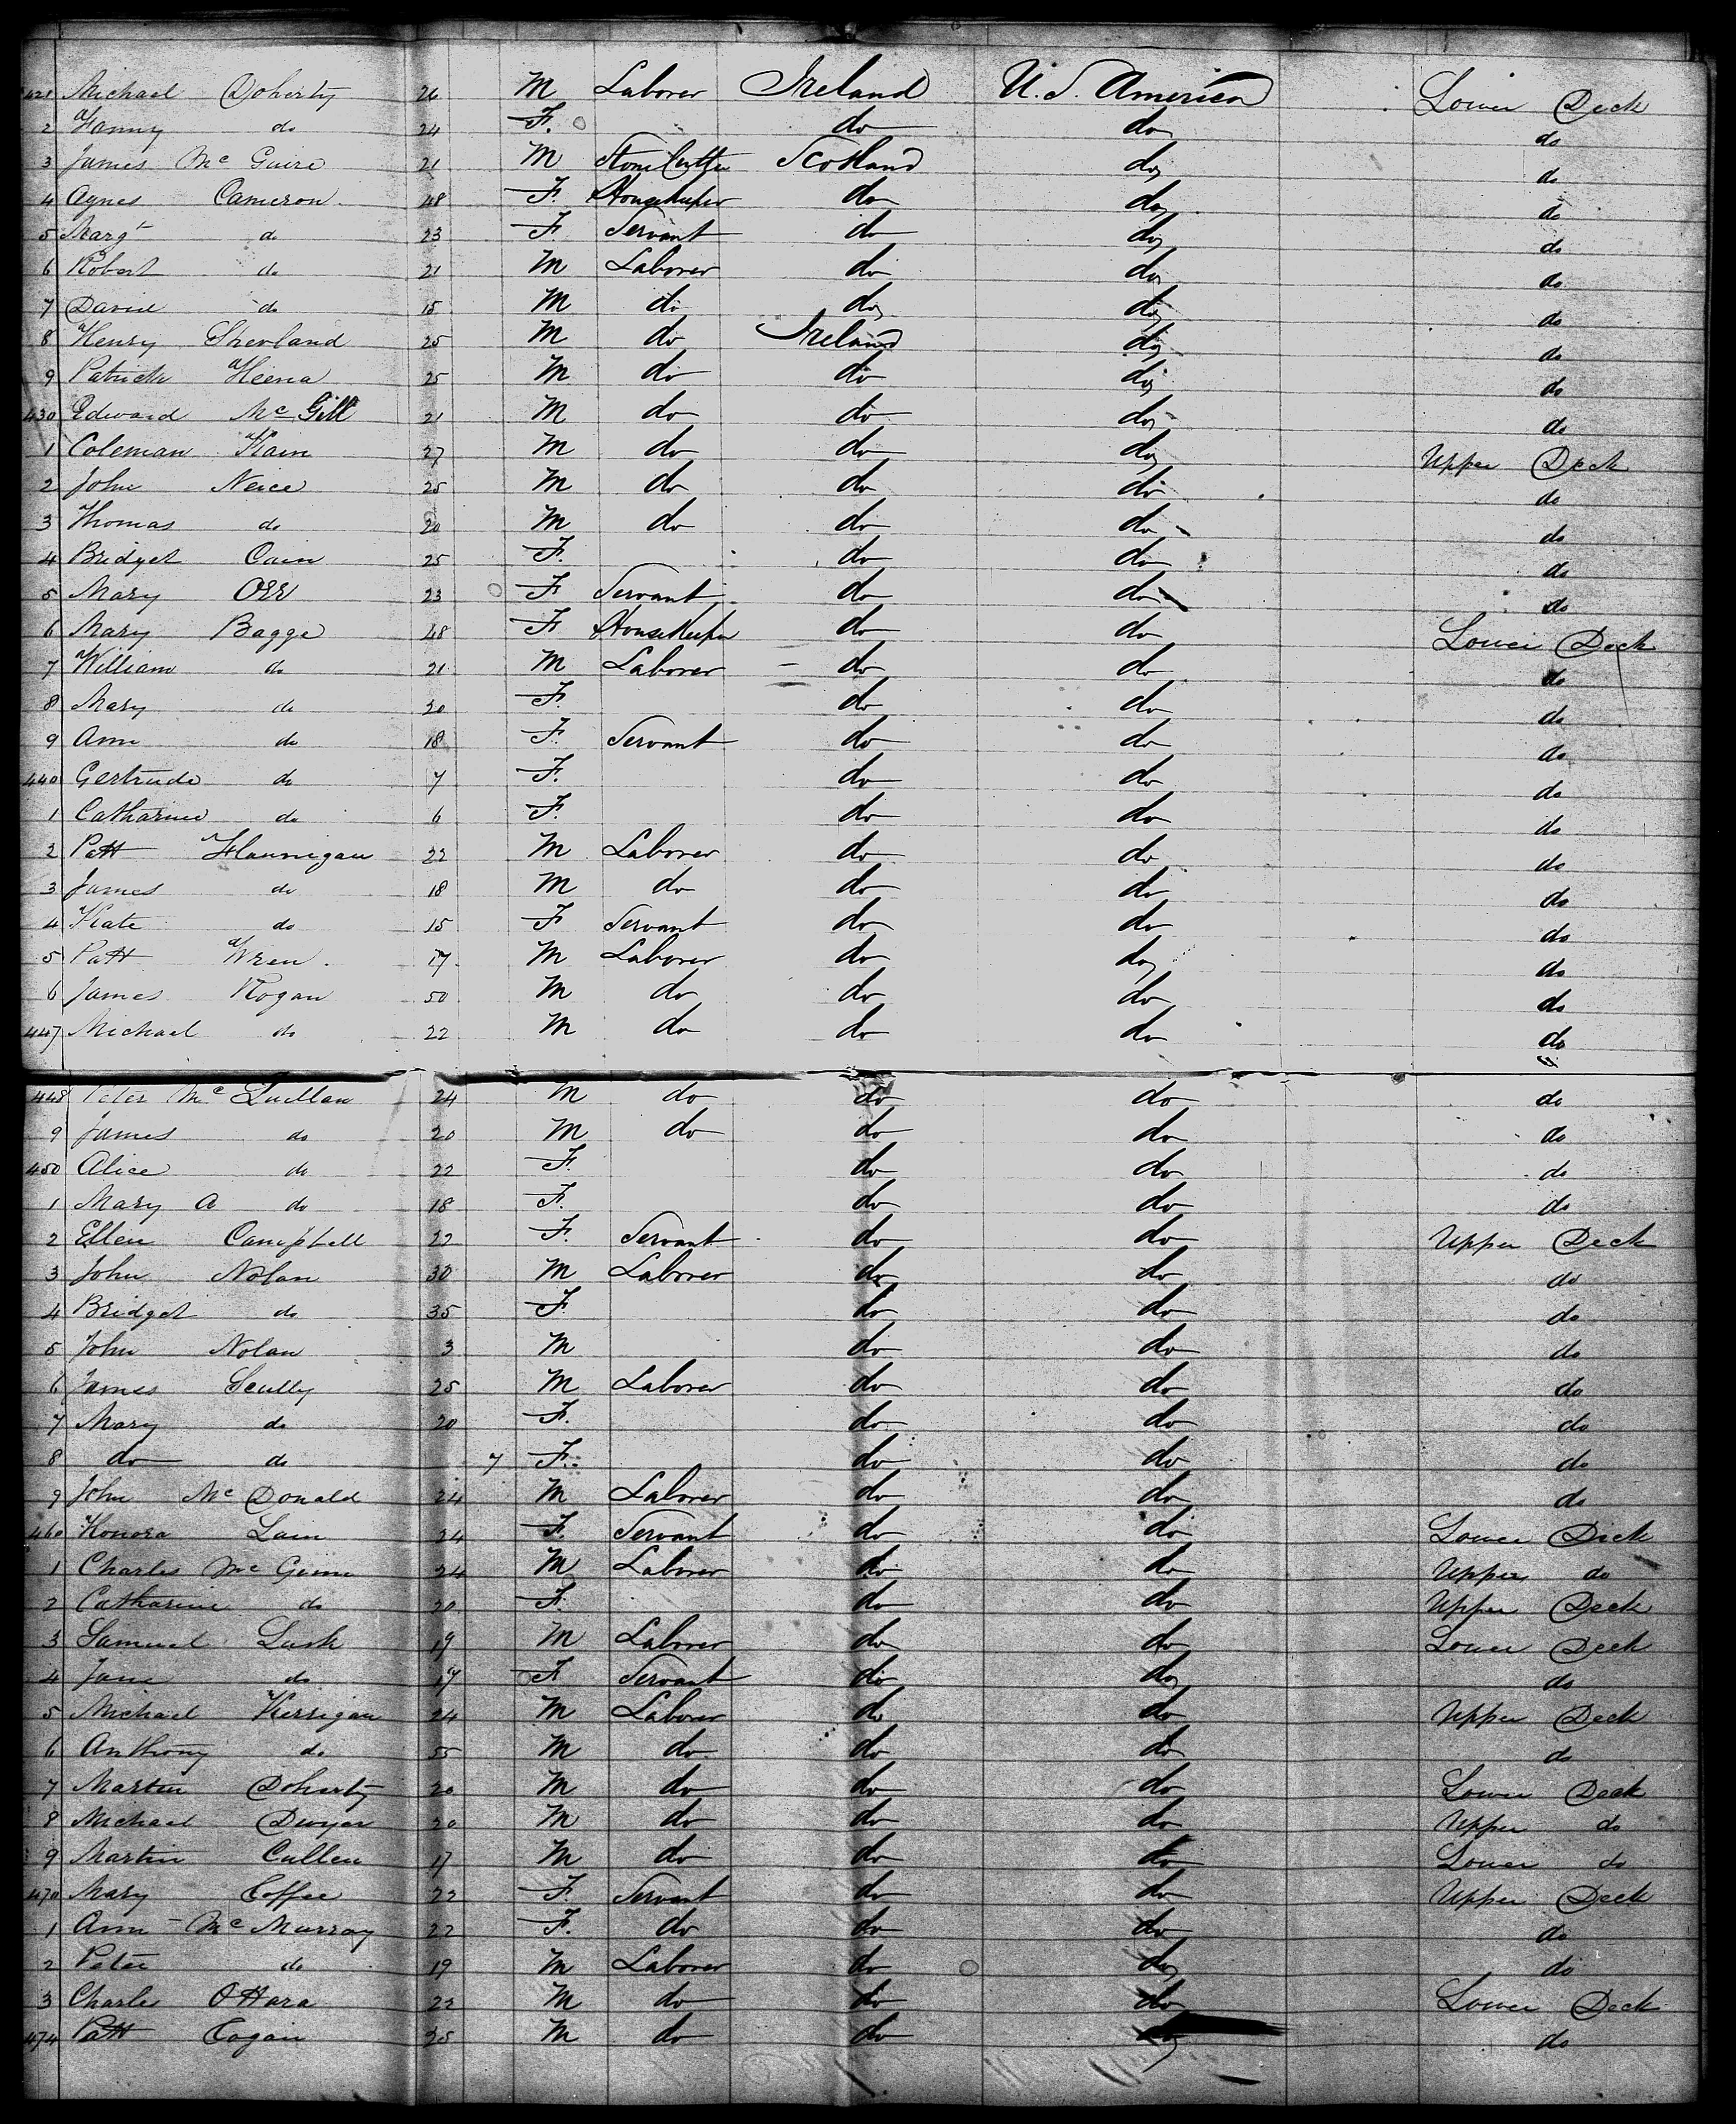 421 Michael Doherty 26 M Laborer Ireland U.S. America Lower Deck
2 Fanny do 24 F. do do do
3 James Mc Guire 21 M Stone Cutter Scotland do do
4 Agnes Cameron 48 F. Housekeeper do do do
5 Margt do 23 F Servant do do do
6 Robert do 21 M Laborer do do do
7 David do 15 M do do do do
8 Henry Shevland 25 M do Ireland do do
9 Patrick Heena 25 M do do do do
430 Edward Mc Gill 21 M do do do do
1 Coleman Kain 27 M do do do Upper Deck
2 John Neice 25 M do do do do
3 Thomas do 20 M do do do do
4 Bridget Cain 25 F. do do do
5 Mary Orr 23 F Servant do do do
6 Mary Bagge 48 F Housekeeper do do Lower Deck
7 William do 21 M Laborer do do do
8 Mary do 20 F. do do do
9 Ann do 18 F. Servant do do do
440 Gertrude do 7 F. do do do
1 Catharine do 6 F. do do do
2 Patt Flannigan 22 M Laborer do do do
3 James do 18 M do do do do
4 Kate do 15 F Servant do do do
5 Patt Wren 17 M Laborer do do do
6 James Rogan 50 M do do do do
447 Michael do 22 M do do do do
448 Peter Mc Quillan 24 M do do do do
9 James do 20 M do do do do
450 Alice do 22 F. do do do
1 Mary A do 18 F. do do do
2 Ellen Campbell 22 F. Servant do do Upper Deck
3 John Nolan 30 M Laborer do do do
4 Bridget do 35 F. do do do
5 John Nolan 3 M do do do
6 James Scully 25 M Laborer do do do
7 Mary do 20 F. do do do
8 do do 7 F. do do do
9 John Mc Donald 24 M Laborer do do do
460 Honora Lain 24 F. Servant do do Lower Deck
1 Charles Mc 24 M Laborer do do Upper do
2 Catharine do 20 F. do do Upper Deck
3 Samuel Lusk 19 M Laborer do do Lower Deck
4 Jane do 17 F Servant do do do
5 Michael Kerrigan 24 M Laborer do do Upper Deck
6 Anthony do 55 M do do do do
7 Martin Doherty 20 M do do do Lower Deck
8 Michael Dwyer 20 M do do do Upper do
9 Martin Cullen 17 M do do do Lower do
470 Mary Coffee 22 F. Servant do do Upper Deck
1 Ann Mc Murray 22 F. do do do do
2 Peter do 19 M Laborer do do do
3 Charles O'Hara 22 M do do do Lower Deck
474 Patt Cogan 25 M do do do do